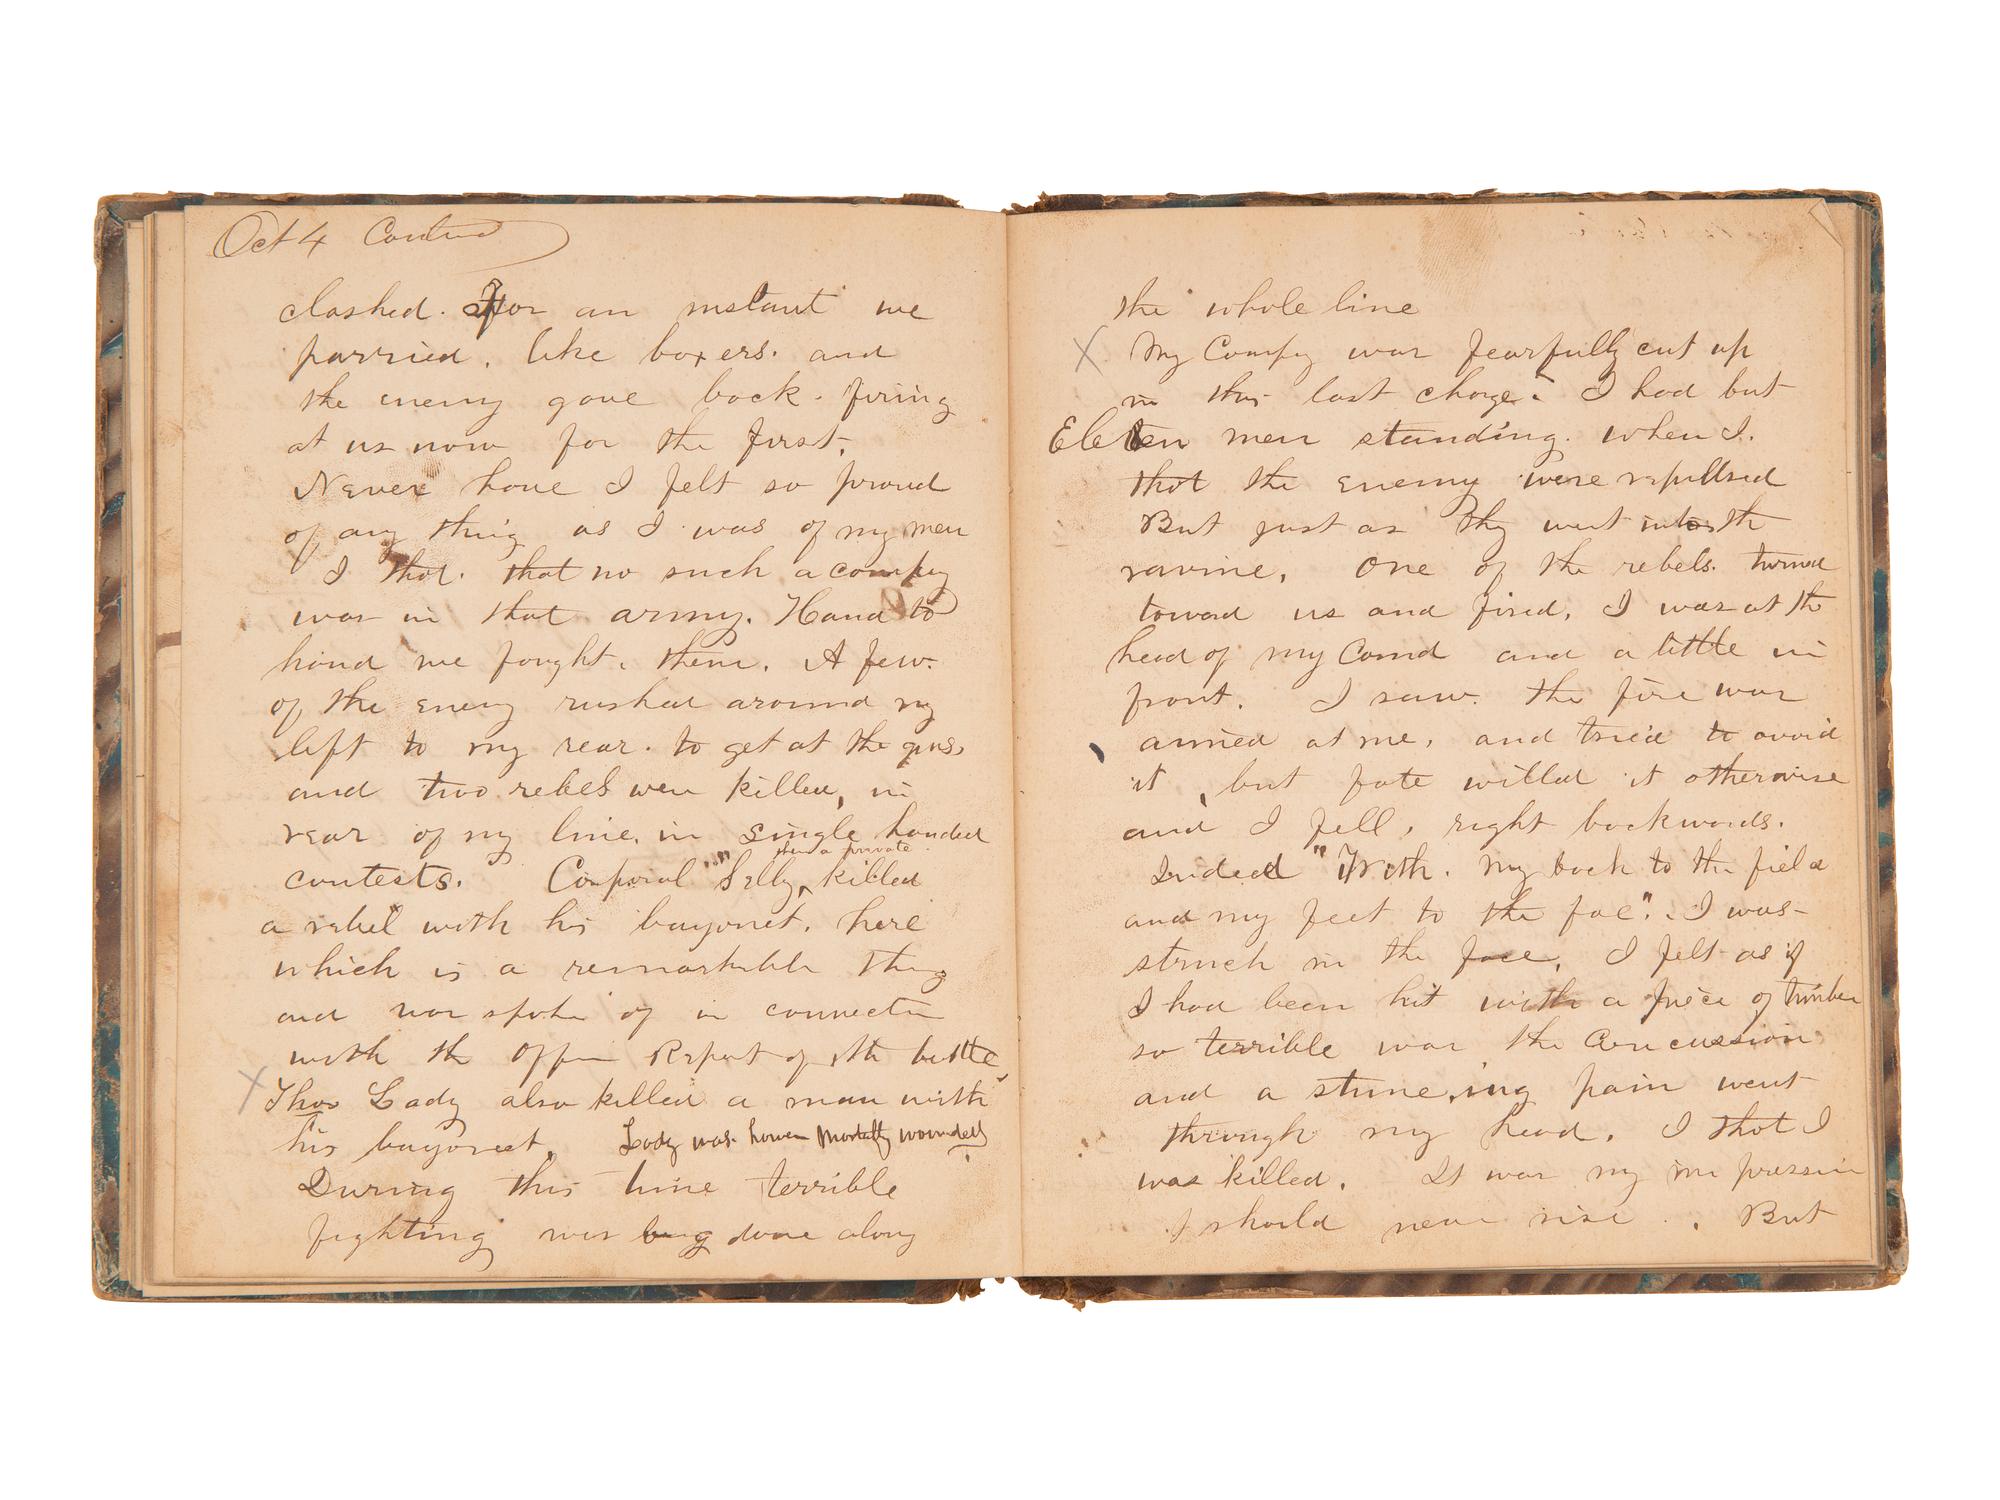 Oct 4 Contind
clashed. For an instant we
parried, like boxers. and
the enemy gave back. firing
at us now for the first,
Never have I felt so proud
of any thing as I was of my men
I thot. that no such a compy
was in that army. Hand to
hand we fought, them. A few.
of the enemy rushed around my
left to my rear. to get at the guns,
and two rebels were killed, in
rear of my line, in single handed
contests. Corporal "Selby, then a private killed
a rebel with his bayonet, here
which is a remarkable thing
and was spoke of in connectn
with the Report of the battle,
X Thos Lady also killed a man with
his bayonet, Lady was mortally wounded
During this time terrible
fighting was being done along
the whole line
X My Compy was fearfully cut up
in this last charge. I had but
Eleven men standing. when I.
thot the enemy were repullsed
But just as they went into th
ravine, One of the rebels. turned
toward us and fired, I was at the
head of my Comd and a little in
front. I saw. the fire was
aimed at me, and tried to avoid
it, but fate willed it otherwise
and I fell, right backwards.
Indeed "With. my back to the field
and my feet to the foe". I was
struck in the face, I felt as if
I had been hit with a piece of timber
so terrible was the concussion
and a stuneing pain went
through my head, I thot I
was killed, It was my impression
I should never rise. But